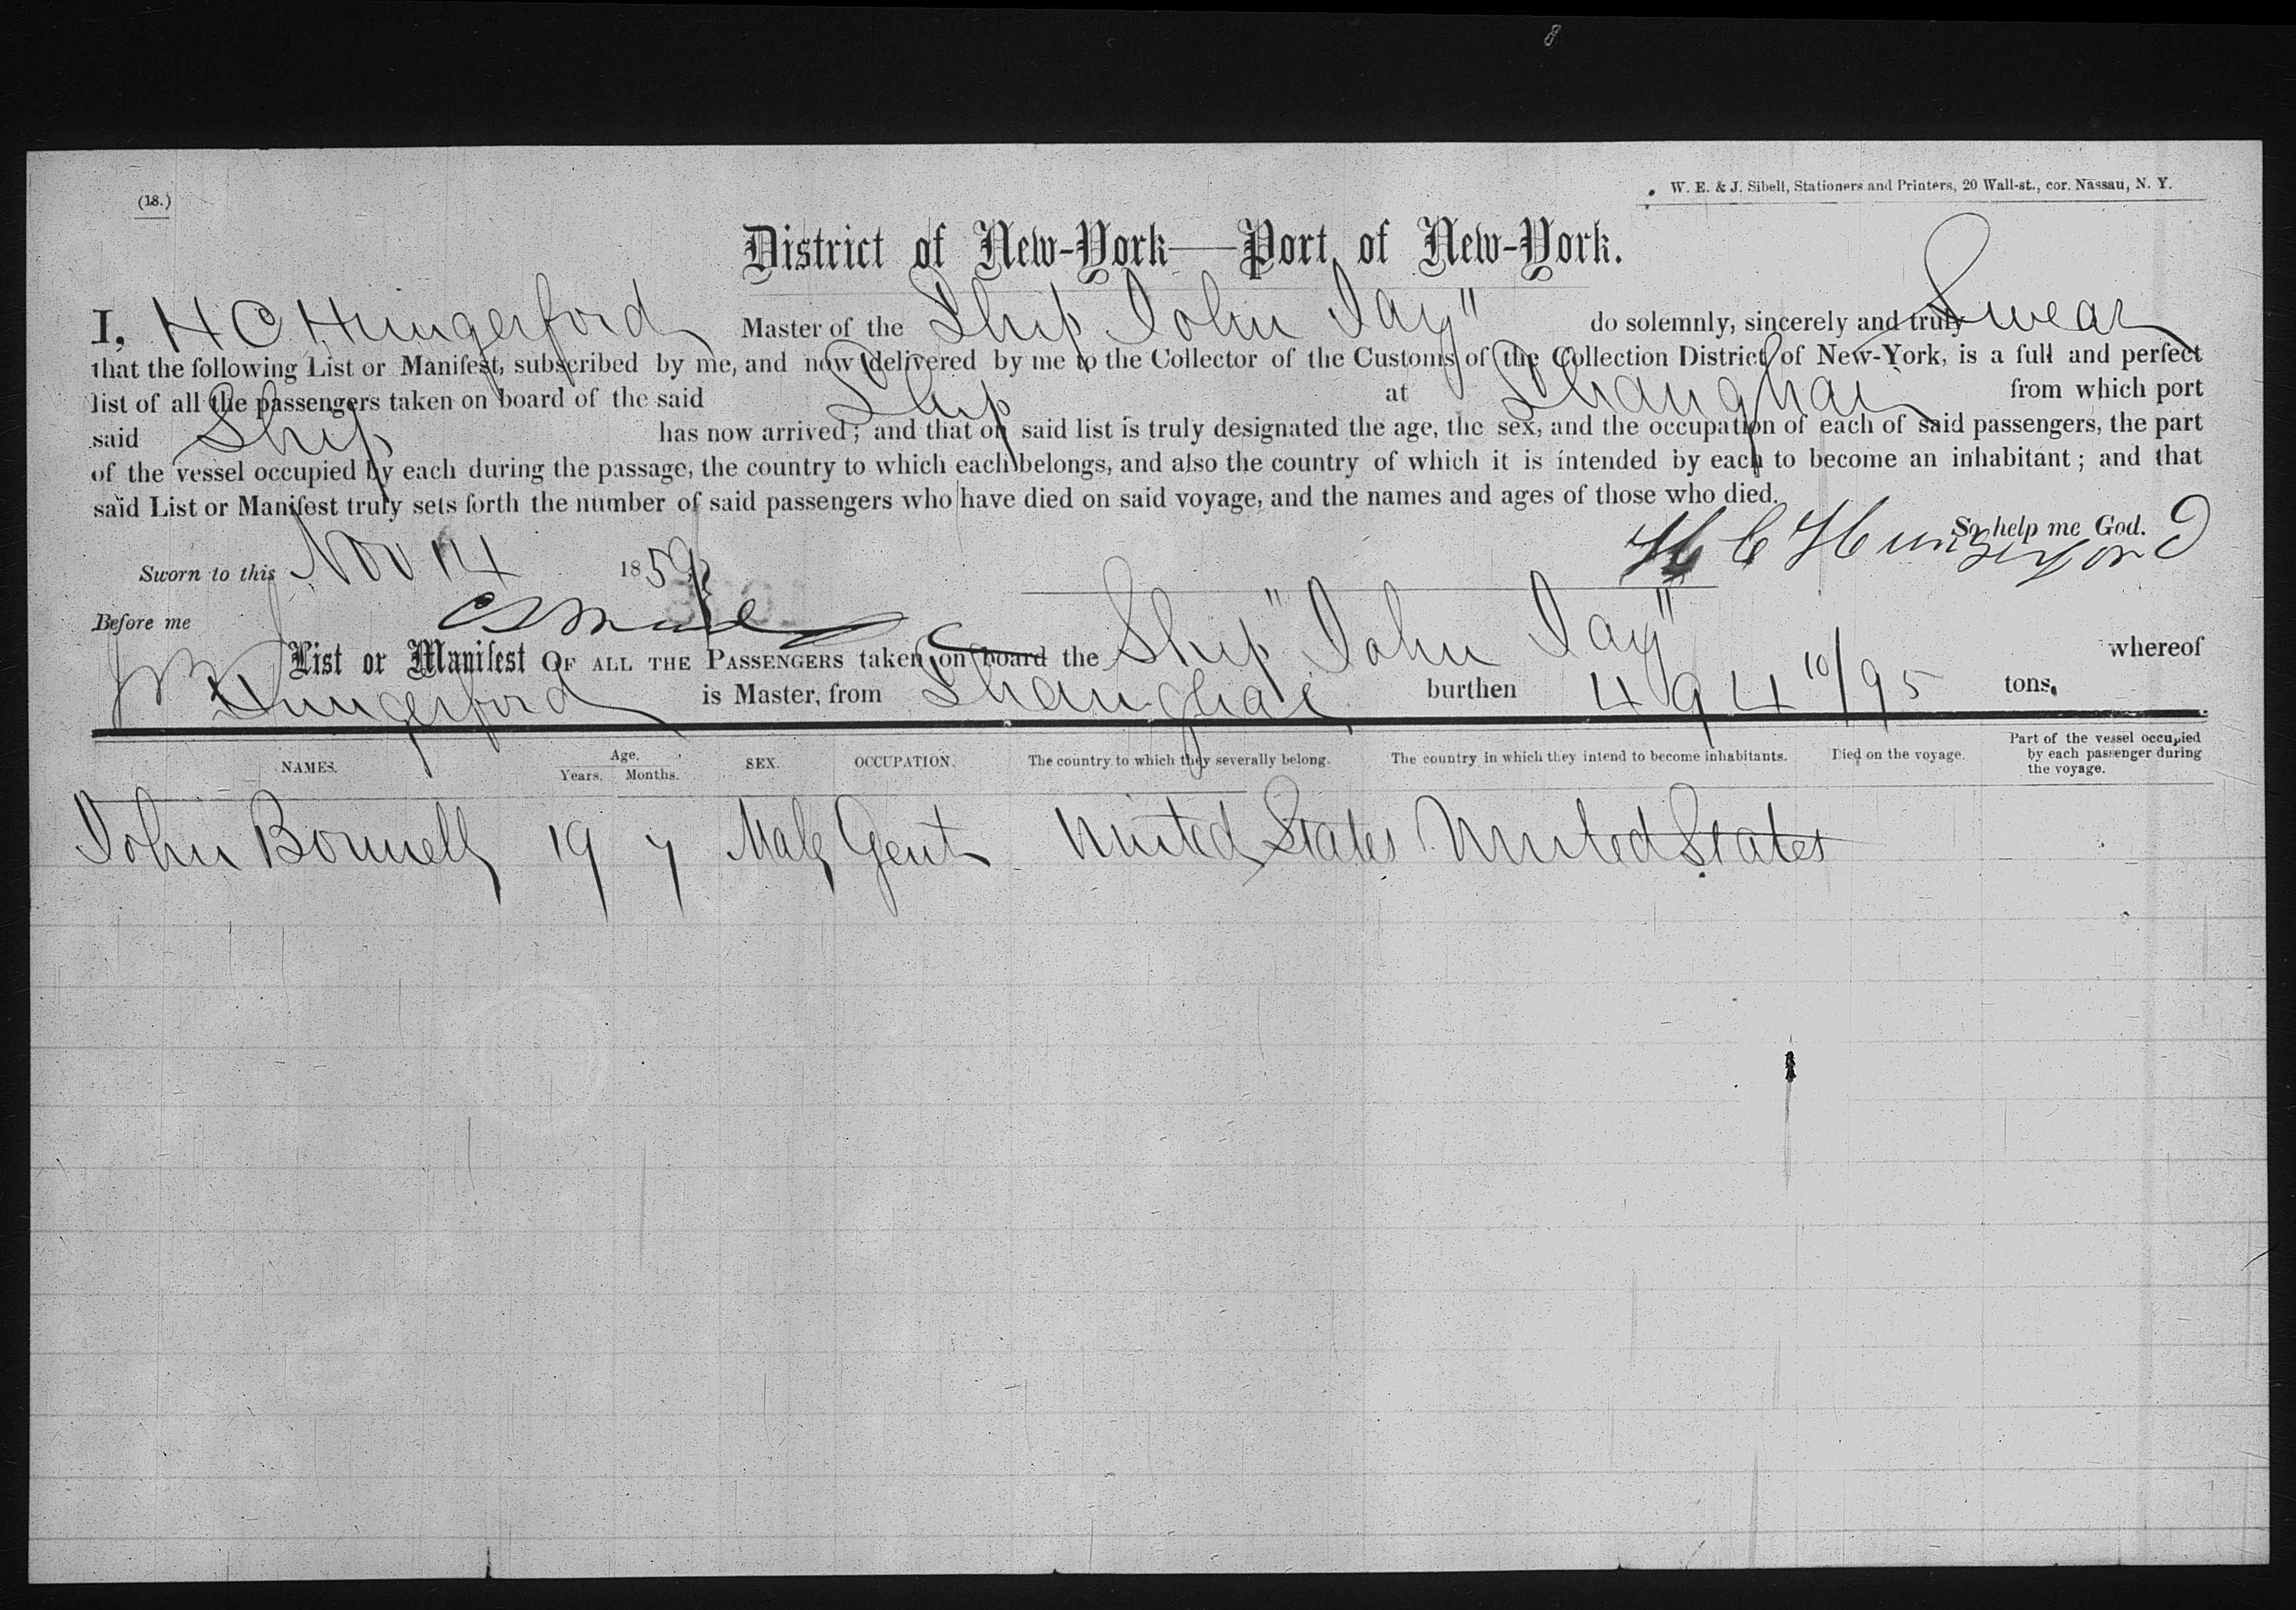 (18.)
W. E. & J. Sibell, Stationers and Printers, 20 Wall-st., cor. Nassau, N. Y.
District of New-York—Port of New-York.
I, H C Hungerford Master of the Ship "John Jay" do solemnly, sincerely and truly Swear
that the following List or Manifest, subscribed by me, and now delivered by me to the Collector of the Customs of the Collection District of New-York, is a full and perfect
list of all the passengers taken on board of the said Ship at Shanghai from which port
said Ship has now arrived; and that on said list is truly designated the age, the sex, and the occupation of each of said passengers, the part
of the vessel occupied by each during the passage, the country to which each belongs, and also the country of which it is intended by each to become an inhabitant; and that
said List or Manifest truly sets forth the number of said passengers who have died on said voyage, and the names and ages of those who died.
So help me God.
H C Hungerford
Sworn to this Nov 14 1859
Before me
List or Manifest OF ALL THE PASSENGERS taken on board the Ship "John Jay" whereof
Hungerford is Master, from Shanghai burthen 494 10/95 tons.
NAMES. Age. Years. Months. SEX. OCCUPATION. The country to which they severally belong. The country in which they intend to become inhabitants. Died on the voyage. Part of the vessel occupied by each passenger during the voyage.
John Bonnell 19 7 Male Gent United States United States